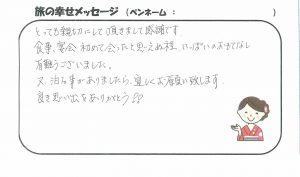 旅の幸せメッセージ （ペンネーム： ）
とっても親切にして頂きまして感謝です
食事、宴会 初めて会ったと思えぬ程、いっぱいのおもてなし
有難うございました。
又、泊る事がありましたら、宜しくお願い致します
良き思い出をありがとう!!